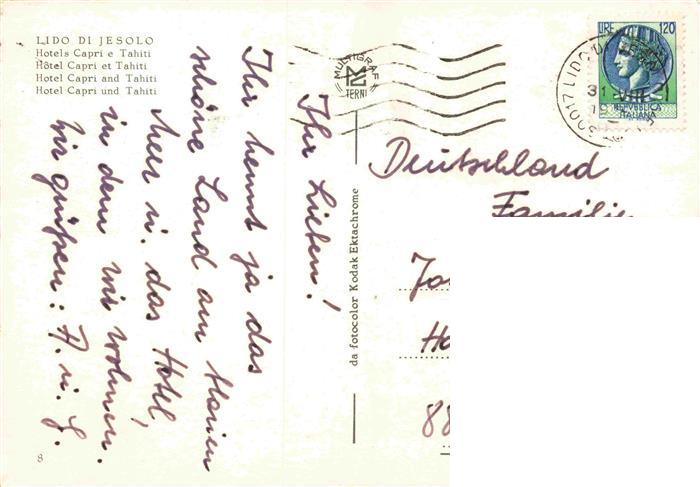 LIDO DI JESOLO
Hotels Capri e Tahiti
Hôtel Capri et Tahiti
Hotel Capri and Tahiti
Hotel Capri und Tahiti
Ihr Lieben!
Ihr kennt ja das
schöne Land am
Meer u. das Hotel,
in dem wir wohnen.
Wir grüßen: A. u. G.
8
da fotocolor Kodak Ektachrome
MULTIGRAF
TERNI
LIRE 120
REPVBBLICA
ITALIANA
30017 LIDO DI
31 VIII
Deutschland
Familie
Jo
Ho
88